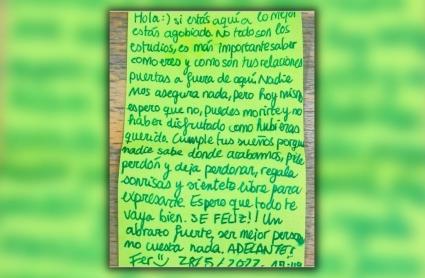 Hola :) si estás aquí a lo mejor
estás agobiado. No todo son los
estudios, es más importante saber
como eres y como son tus relaciones
puertas a fuera de aquí. Nadie
nos asegura nada, pero hoy mismo
espero que no, puedes morirte y no
haber disfrutado como hubieras
querido. Cumple tus sueños porque
nadie sabe donde acabamos, pide
perdón y deja perdonar, regala
sonrisas y sientete libre para
expresarte. Espero que todo te
vaya bien. SE FELIZ!! Un
abrazo fuerte, ser mejor persona
no cuesta nada. ADELANTE!
Fer :) 28/5/2022